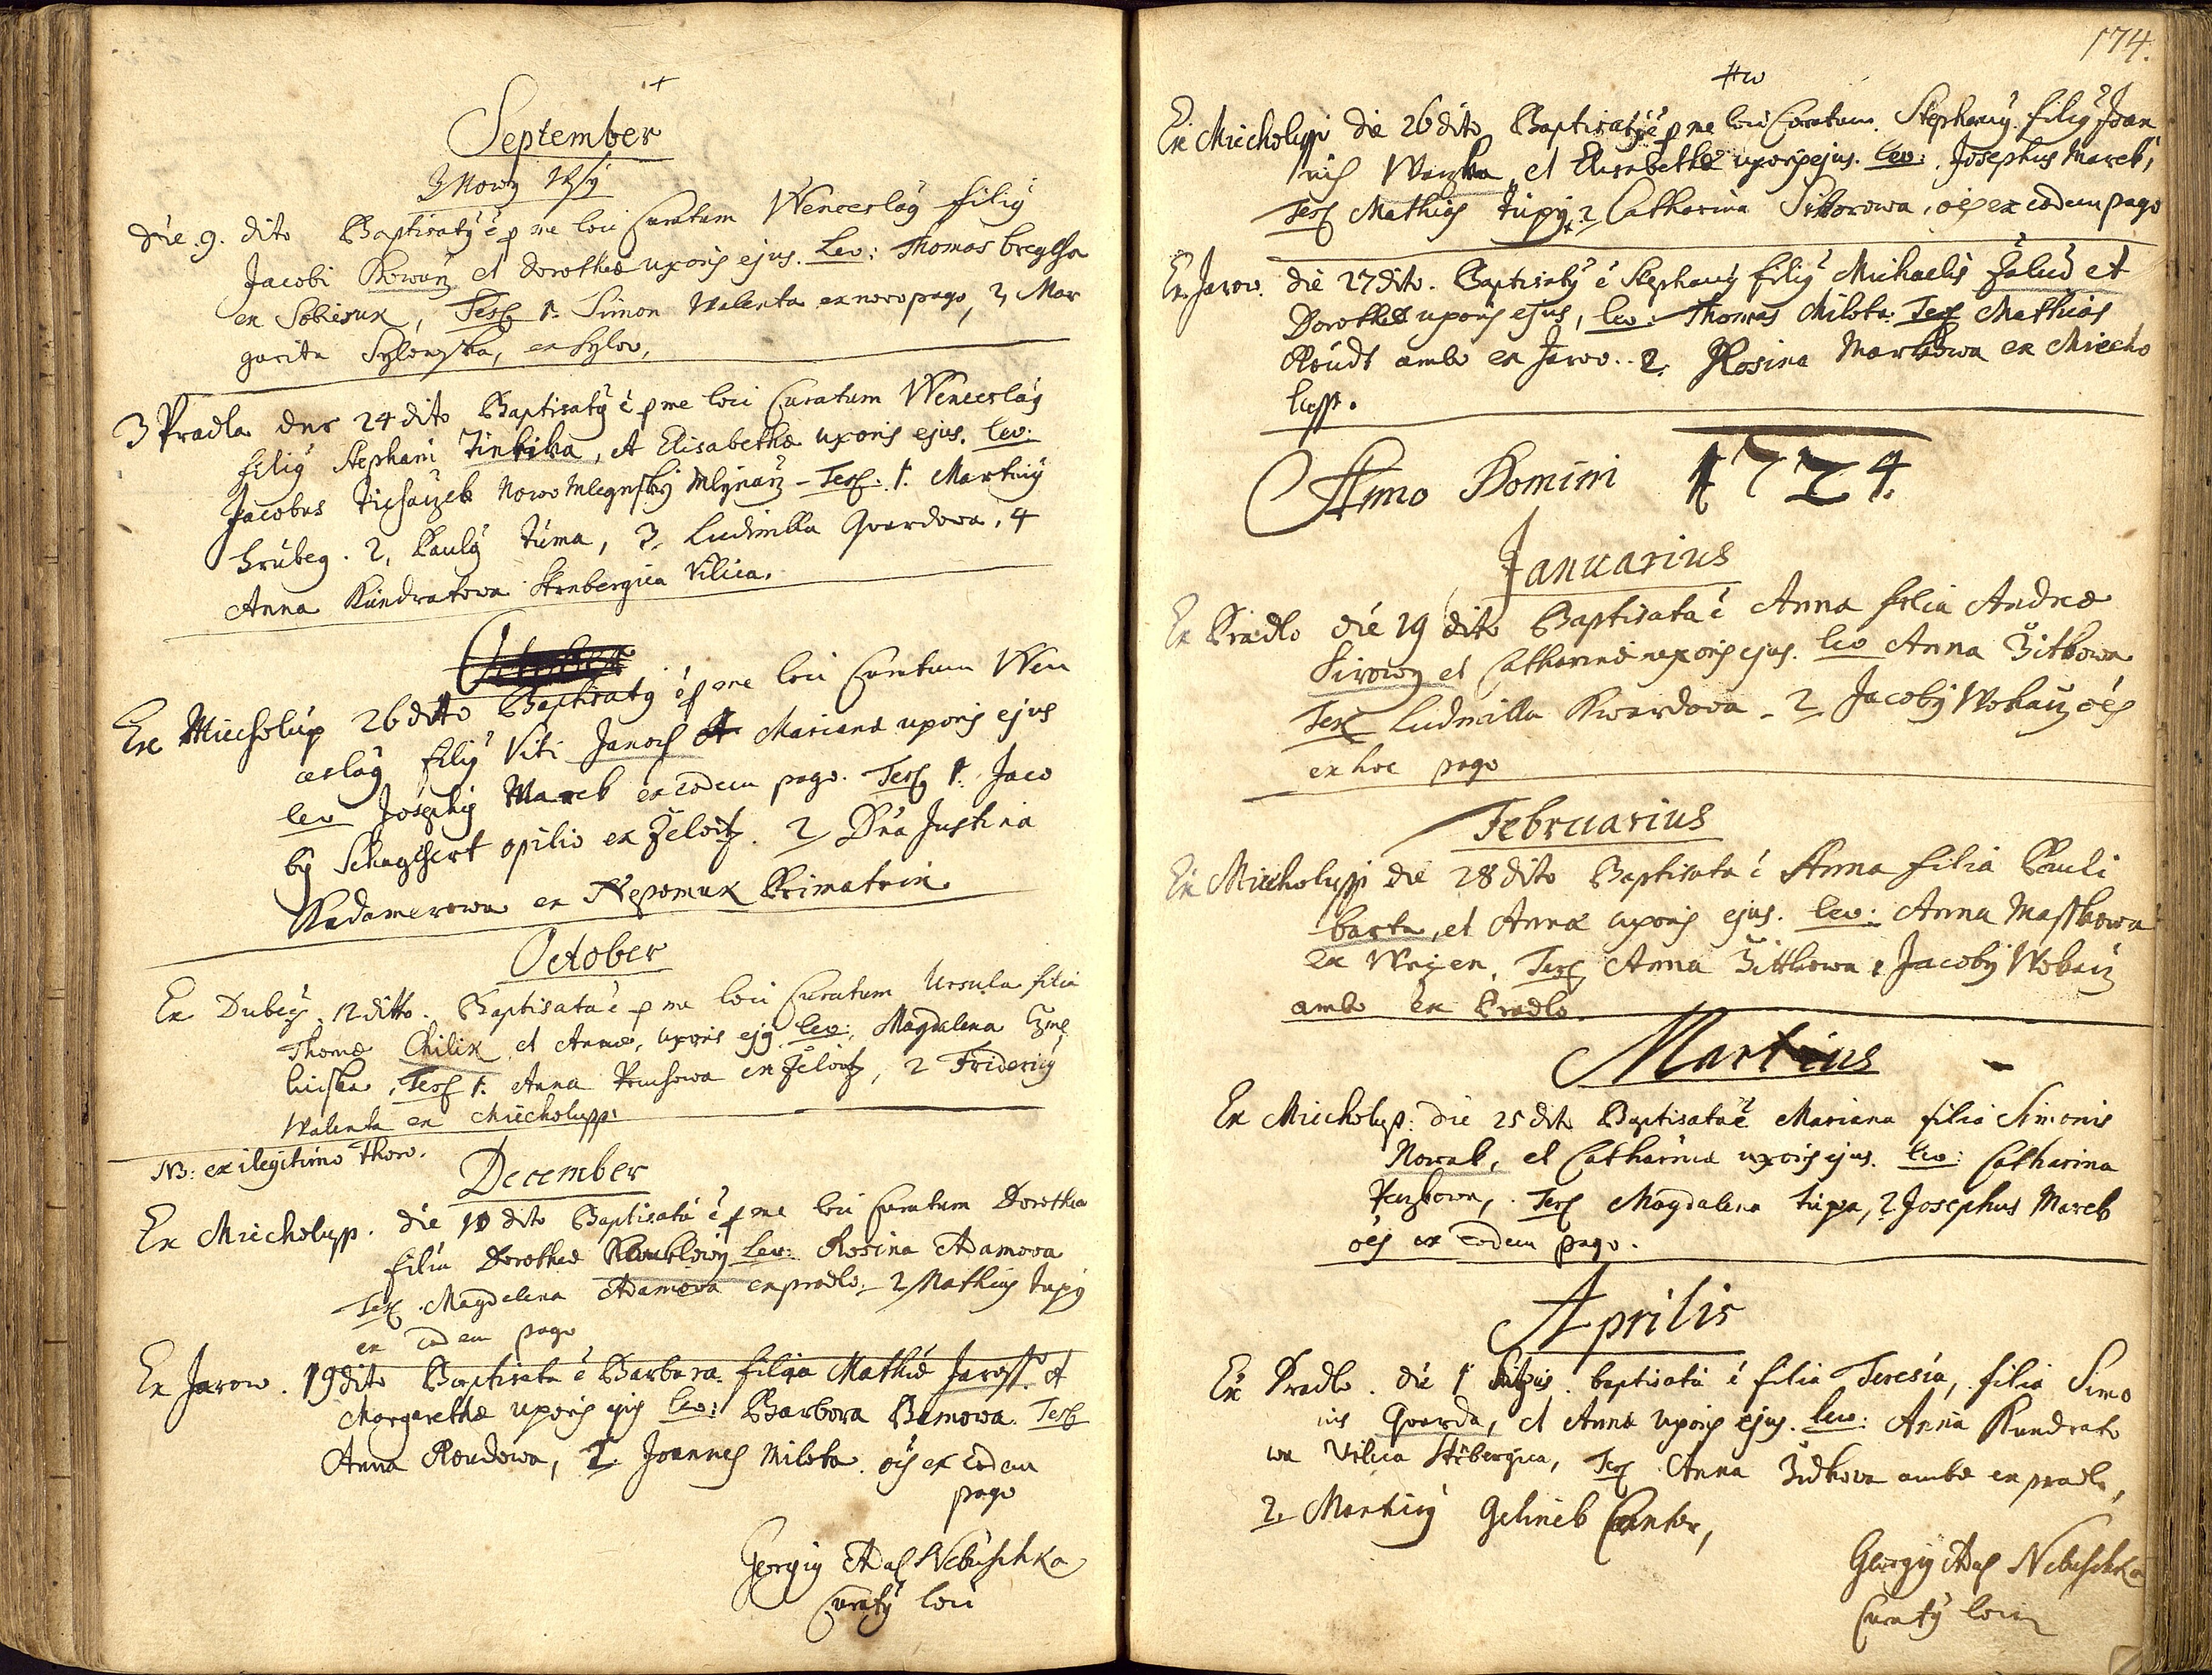 September
z Nowy Wsy
die. 9. dito Baptisatÿ é p me loci Curatum Wenceslaÿ filiÿ
Jacobi Kowarz et Dorothæ uxoris ejus. Lev: Thomas
ex Sobiesuk, Tes 1. Simon Walenta ex novo pago, 2, Mar
garita
z Pradla 24 dito Baptisatÿ é p me loci Curatum Wenceslaÿ
filiÿ Stephani Tinkika, et Elisabethæ uxoris ejus. lev:
Jacobus Nowo Mlegnskÿ Mlÿnarz - Tes. 1. Martinÿ
Hrubeg. 2, Paulÿ Tuma, 3, Ludmilla Quardowa, 4
Anna Kundratowa Villica.
Ex Miecholup 26 ditto Baptisatÿ é p me loci Curatum Wen
ceslaÿ filiÿ Viti Janoch et Marianæ uxoris ejus
lev Josephÿ Marek ex eodem pago. Tes 1. Jaco
bÿ opilio ex Zeloitz. 2, Dna Justina
Kadamerowa ex Nepomuk Primatrix
October
Ex Dubcÿ. 12 ditto. Baptisata é p me loci Curatum Ursula filia
Thomæ Chilik et Annæ, uxoris ejÿ. lev: Magdalena
Tes 1. Anna ex Zeloitz, 2 Fridericÿ
Walenta ex Miecholupp:
NB: ex ilegitimo thoro.
December
Ex Miecholupp. die 10 dito Baptisata é p me loci Curatum Dorothea
filia Dorotheæ Lev: Rosina Adamova
Tes Magdalena Adamova ex pradlo. 2, Mathias Tupÿ
ex eodem pago
Ex Jarow. 19 dito Baptisata é Barbara filia Mathiæ Jaross. et
Margarethæ uxoris ejus lev: Barbora Tes
Anna Roudowa, 2. Joannes Milota oes ex eodem
pago
Georgiÿ Ad. Nebuschka
Curatÿ loci
174.
Ex Miecholuppi die 26 dito Baptisatÿ é p me loci Curatum Stephanÿ filiÿ Joan
nis Waczka et Elisabethæ uxoris ejus. lev: Josephus Marek,
Tes Mathias Tupÿ, 2 Catharina oes ex eodem pago
Ex Jarow. die 27 dito. Baptisatÿ é Stephanÿ filiÿ Michaelis Zalud et
Dorotheæ uxoris ejus, lev: Thomas Milota Tes Mathias
Roudt ambo ex Jarov.. 2. Rosina Markowa ex Miecho
lupp.
Anno Domini 1724.
Januarius
Ex Pradlo die 19 dito Baptisata é Anna filia Andreæ
Sirowy et Catharinæ uxoris ejus. lev Anna Zitkowa
Tes Ludmilla Kwardova - 2, Jacobÿ Wokacz oes
ex hoc pago
Februarius
Ex Miecholuppi die 28 dito Baptisata é Anna filia Pauli
barta, et Annæ uxoris ejus. lev: Anna Masskowa
ex Tes Anna Zittkowa, Jacobÿ Wokacz
ambo ex Pradlo.
Martius
Ex Miecholup: die 25 dito Baptisata é Mariana filia Simonis
Nowak, et Catharinæ uxoris ejus. lev: Catharina
Tes Magdalena Tupa, 2 Josephus Marek
oes ex eodem pago.
Aprilis
Ex Pradlo. die 1 baptisata é filia Teresia, filia Simo
nis Quarda, et Annæ uxoris ejus. lev: Anna Kundrato
wa Vilica Tes Anna Zidkova ambæ ex pradlo,
2, Martinÿ Gelinek Cantor,
Georgiÿ Ad. Nebuschka
Curatÿ loci